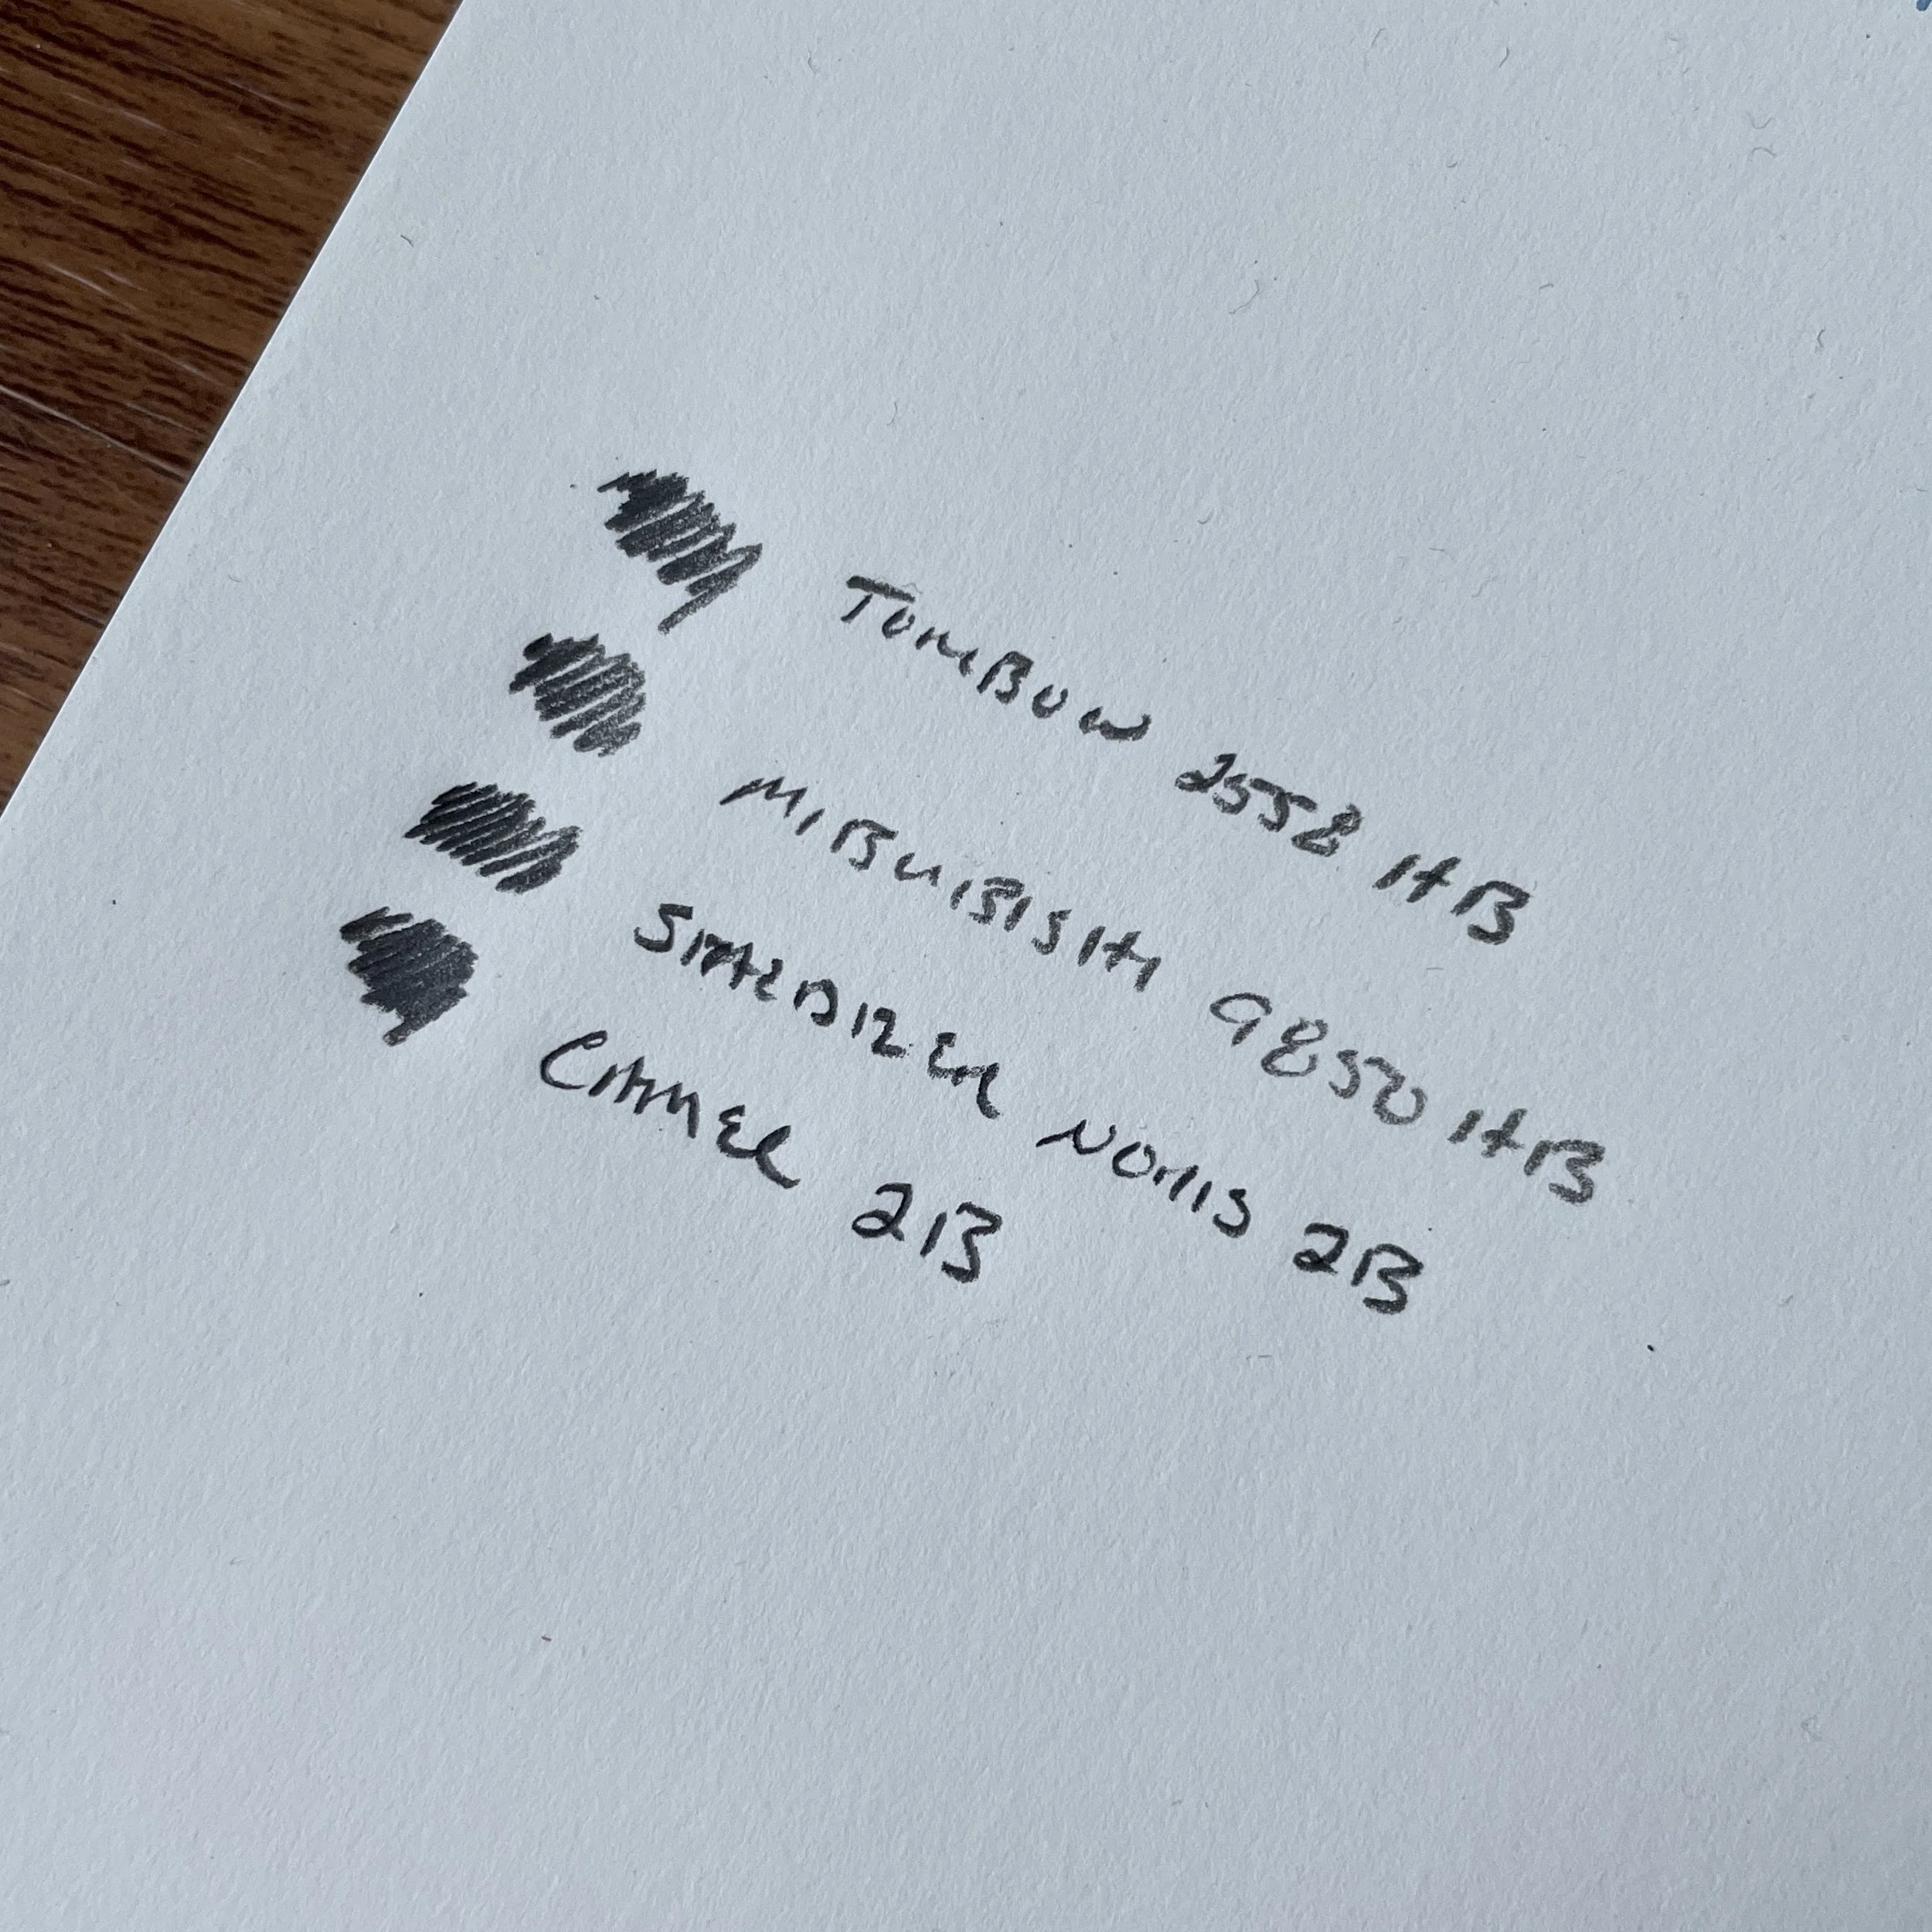 TOMBOW 2558 HB
MIBUIBISHI 9850 HB
STAEDTLER NORIS 2B
CAMEL 2B